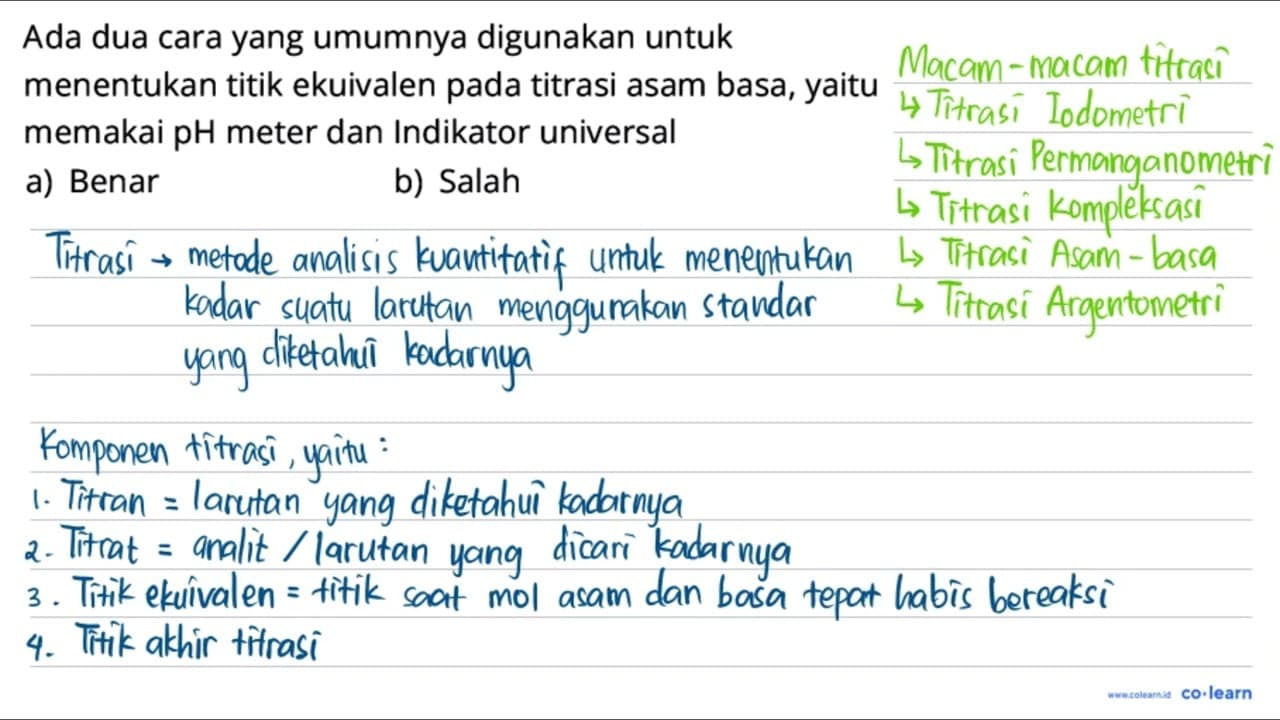 Ada dua cara yang umumnya digunakan untuk
menentukan titik ekuivalen pada titrasi asam basa, yaitu
memakai pH meter dan Indikator universal
a) Benar b) Salah
Macam-macam titrasi
↳ Titrasi Iodometri
↳ Titrasi Permanganometri
↳ Titrasi Kompleksasi
↳ Titrasi Asam-basa
↳ Titrasi Argentometri
Titrasi → metode analisis kuantitatif untuk menentukan
kadar suatu larutan menggunakan standar
yang diketahui kadarnya
Komponen titrasi, yaitu :
1. Titran = larutan yang diketahui kadarnya
2. Titrat = analit / larutan yang dicari kadarnya
3. Titik ekuivalen = titik saat mol asam dan basa tepat habis bereaksi
4. Titik akhir titrasi
www.colearn.id co·learn